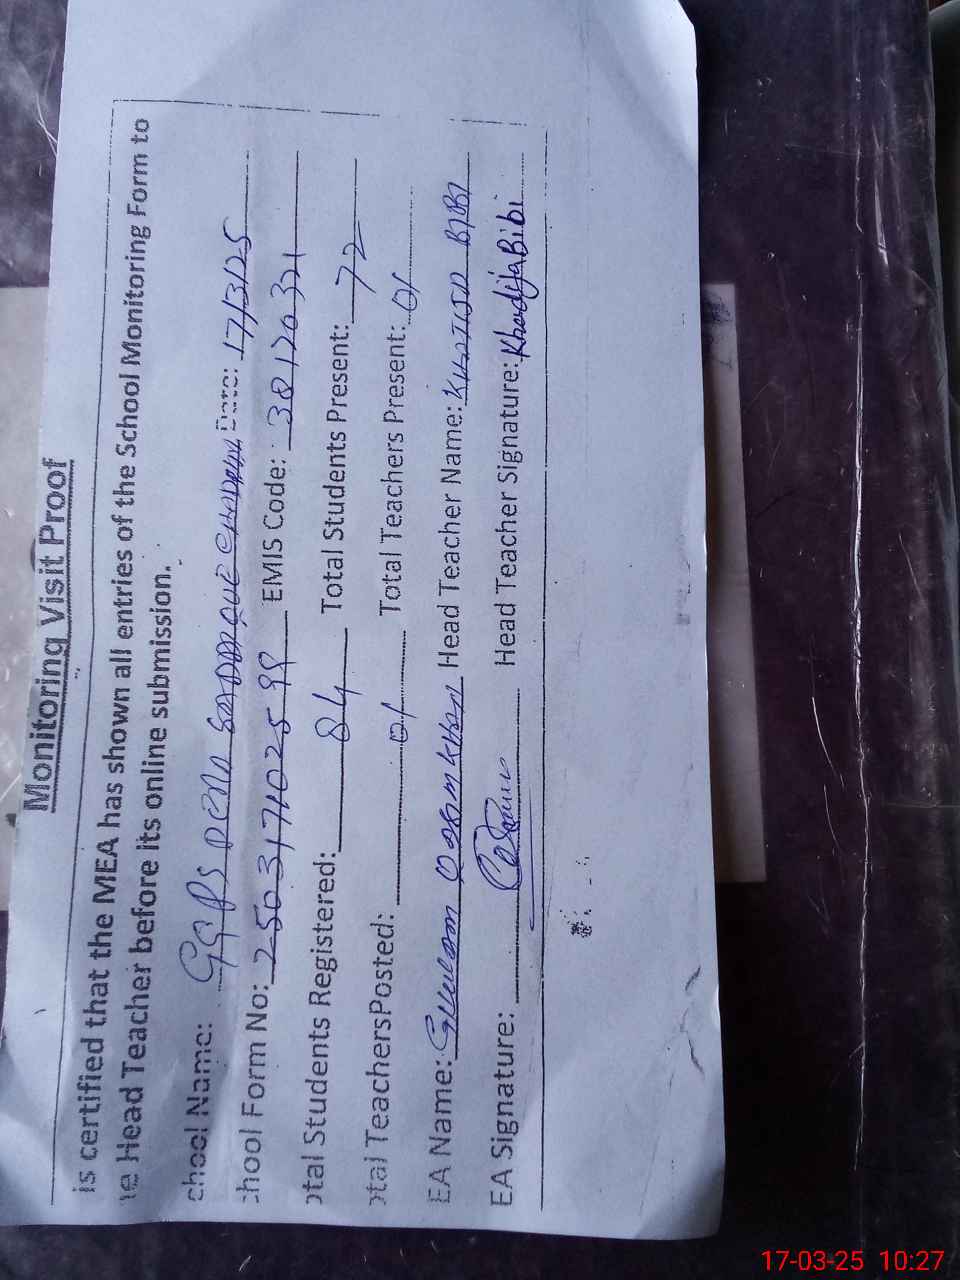 Monitoring Visit Proof
is certified that the MEA has shown all entries of the School Monitoring Form to
Head Teacher before its online submission.
chool Name: GGPS Date: 17/3/25
chool Form No: EMIS Code: 38120321
otal Students Registered: 84 Total Students Present: 72
otal TeachersPosted: 01 Total Teachers Present: 01
EA Name: Ghulam Khan Head Teacher Name: BIBI
EA Signature: Head Teacher Signature: Khadija Bibi
17-03-25 10:27